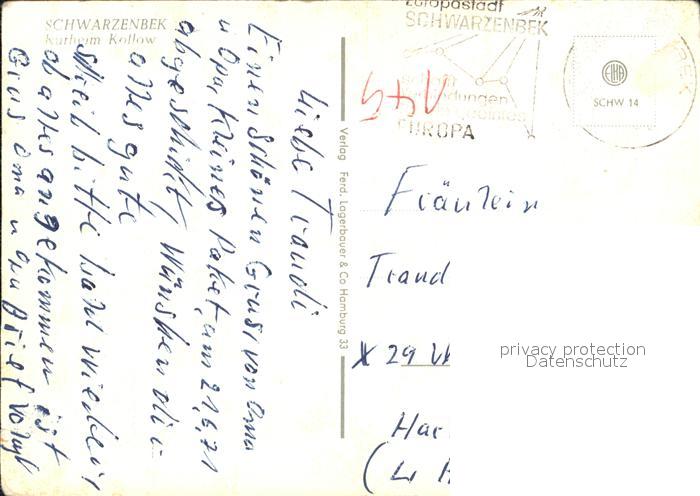 SCHWARZENBEK
Kurheim Kollow
Liebe Traudi
Einen schönen Grus, von Oma
u Opa, Kleines Paket, am 21,6,71
abgeschickt, Wünschen dir
alles gute
schreib bitte bald wieder,
ob alles angekommen ist
Grus Oma u Opa Brief
Verlag Ferd. Lagerbauer & Co Hamburg 33
Europastadt
SCHWARZENBEK
EUROPA
149
EIKA
SCHW 14
Fräulein
Traud
X 29 W
Har
(
privacy protection
Datenschutz